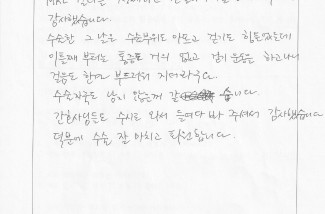 감사했습니다.
수술한 그 날은 수술부위도 아프고 걷기도 힘들었는데
이틀째 부터는 통증도 거의 없고 걷기 운동은 하고나니
걸음도 한결 부드러워 지더라구요.
수술자국도 남지 않는것 같습니다.
간호사님들도 수시로 와서 들여다 봐 주셔서 감사했습니다
덕분에 수술 잘 마치고 퇴원합니다.